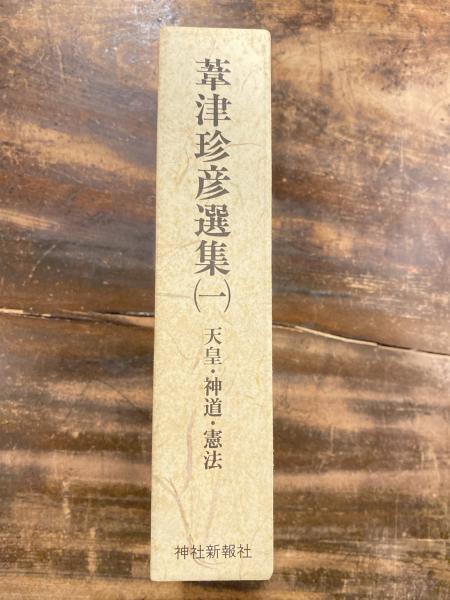 葦津珍彦選集(一)
天皇・神道・憲法
神社新報社